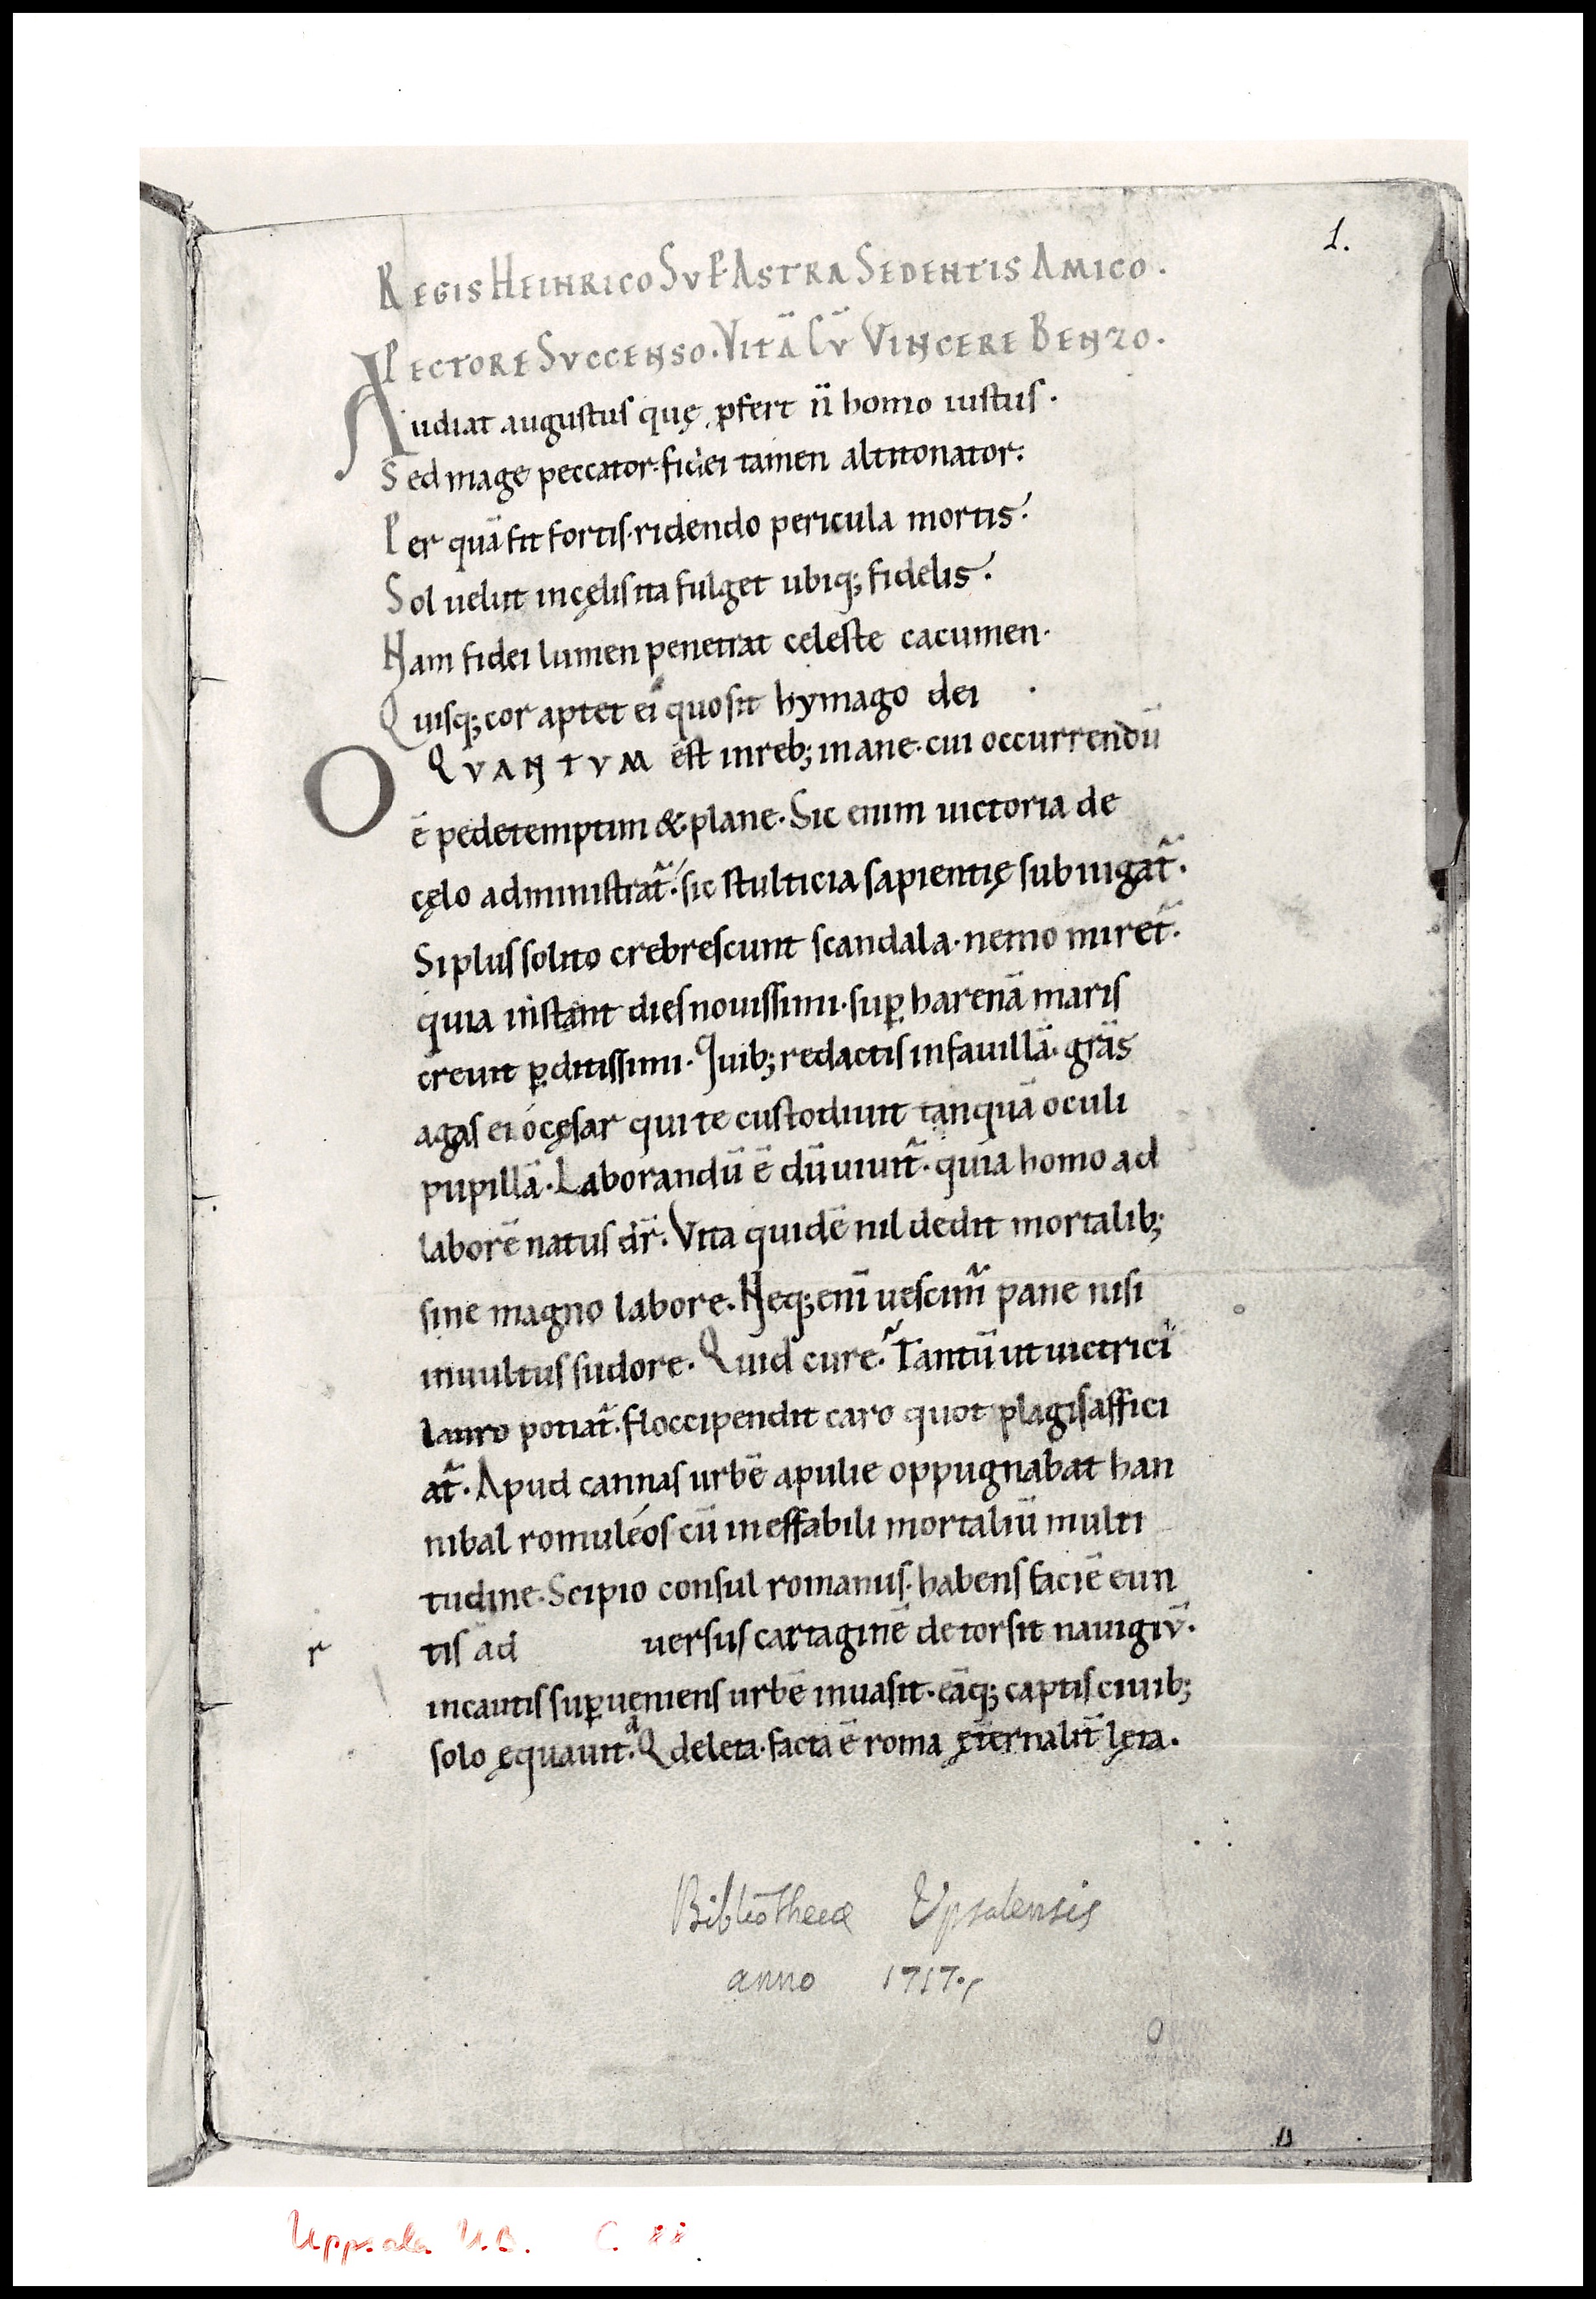 1.
REGIS HEINRICO SVP ASTRA SEDENTIS AMICO.
PECTORE SVCCENSO. VITĀ CŪ VINCERE BENZO.
Audiat augustus quę ꝓfert n̄ homo iustus.
Sed mage peccator. fidei tamen altitonator.
Per quā fit fortis. ridendo pericula mortis.
Sol uelut incęlis ita fulget ubiq; fidelis.
Nam fidei lumen penetrat celeste cacumen.
Quisq; cor aptet ei quo sit hymago dei
O QVANTVM est inreb; inane. cui occurrendū
ē pedetemptim & plane. Sic enim uictoria de
cęlo administrat᷑. sic stulticia sapientię subiugat᷑.
Si plus solito crebrescunt scandala. nemo miret᷑.
quia instant dies nouissimi. suꝑ harenā maris
creuit ꝑditissimi. Quib; redactis infauillā. grās
agas ei ó cęsar qui te custodiuit tanquā oculi
pupillā. Laborandū ē dū uiuit᷑. quia homo ad
laborē natus dr̄. Vita quidē nil dedit mortalib;
sine magno labore. Neq; enī uescim᷑ pane nisi
inuultus sudore. Quid cure. Tantū ut uictrici
lauro potiat᷑. floccipendit caro quot plagis affici
at᷑. Apud cannas urbē apulie oppugnabat han
nibal romuleós cū ineffabili mortaliū multi
tudine. Scipio consul romanus. habens faciē eun
r tis ad uersus cartaginē detorsit nauigiū.
incautis suꝑueniens urbē inuasit. eāq; captis ciuib;
solo ęquauit. Qᵃ deleta. facta ē roma ęternalit᷑ lęta.
Bibliothecæ Upsalensis
anno 1717.
Uppsala U.B. C. 88.